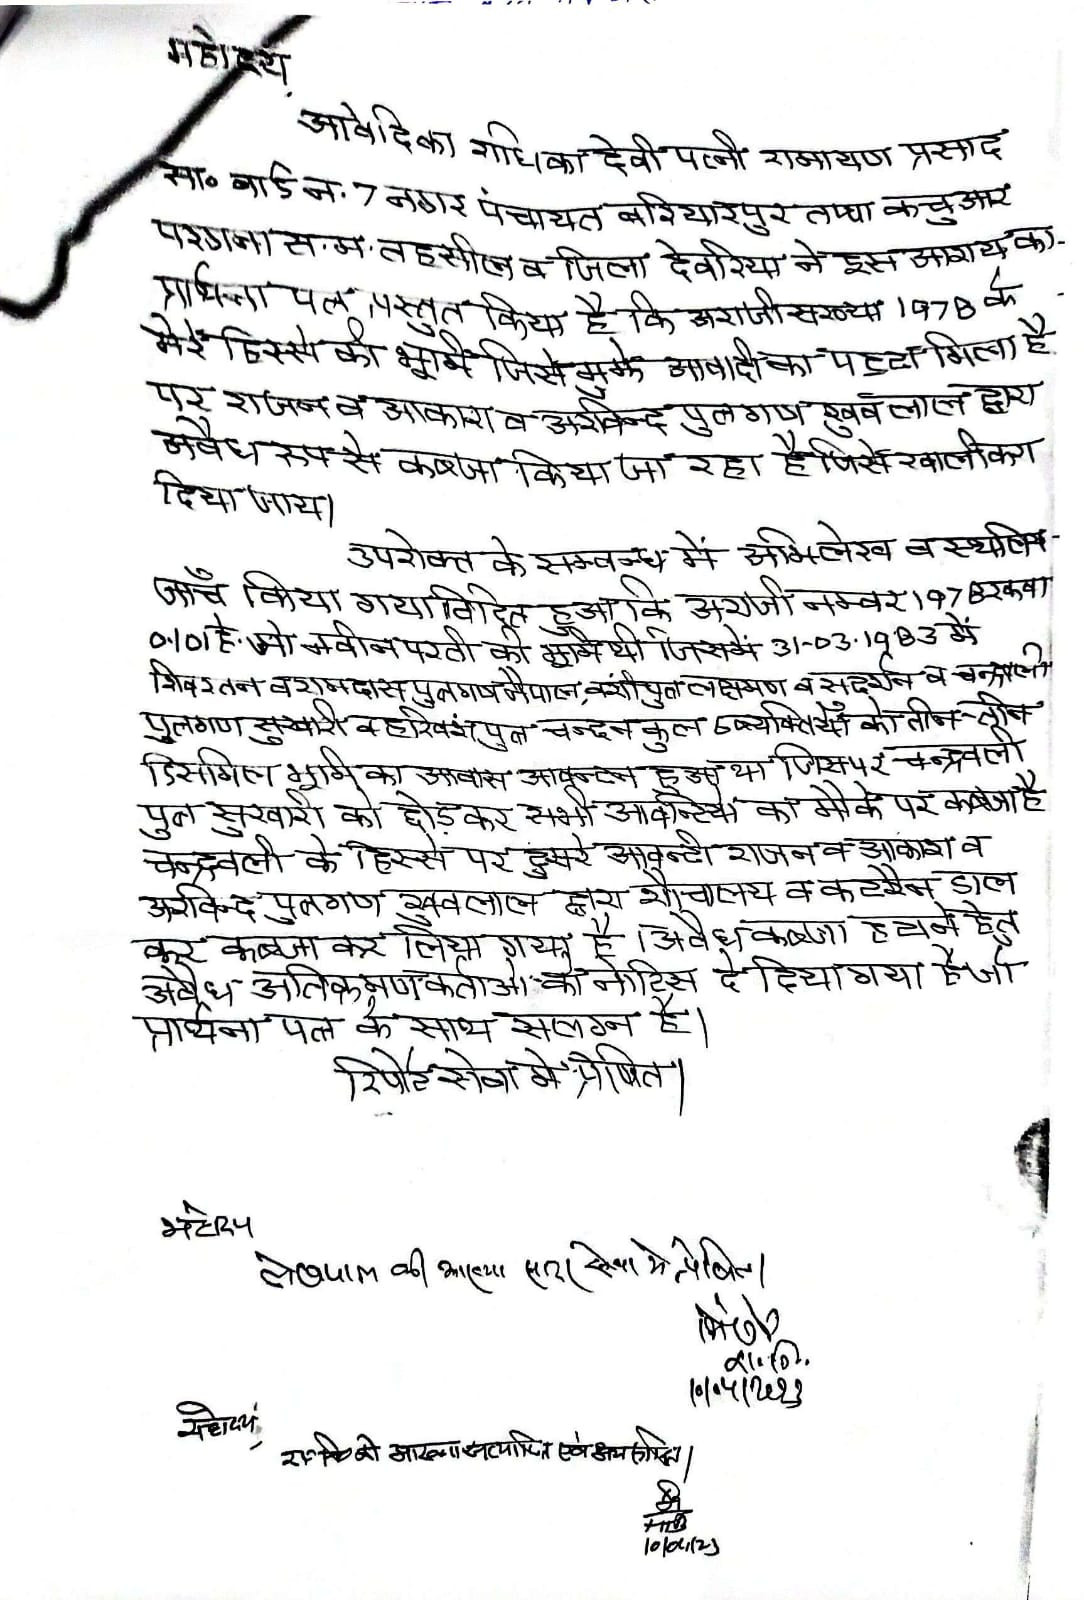 महोदय,
आवेदिका राधिका देवी पत्नी रामायण प्रसाद
सा० वार्ड न. 7 नगर पंचायत बरियारपुर तप्पा कचुआर
परगना स.म. तहसील व जिला देवरिया ने इस आशय का-
प्रार्थना पत्र प्रस्तुत किया है कि अराजी सख्या 197B के
मेरे हिस्से की भूमि जिसे मुझे आवादी का पट्टा मिला है
पर राजन व आकाश व अरविन्द पुत्रगण खुवलाल द्वारा
अवैध रुप से कब्जा किया जा रहा है जिसे खाली करा
दिया जाय।
उपरोक्त के सम्बन्ध में अभिलेख व स्थलिय-
जाँच किया गया विदित हुआ कि अराजी नम्बर 197B रकबा
0.101 हे. जो नवीन परती की भूमि थी जिसमें 31-03-1983 में
शिवरतन व रामदास पुत्रगण नैपाल, वंशी पुत्र लक्षमण व सुदर्शन व चन्द्रावली
पुत्रगण सुखारी व हरिवंश पुत्र चन्दन कुल 6 व्यक्तियों को तीन-तीन
डिसमिल भूमि का आवास आवन्टन हुआ था जिसपर चन्द्रवली
पुत्र सुखारी को छोड़कर सभी आवन्टियों का मौके पर कब्जा है
चन्द्रवली के हिस्से पर दुसरे आवन्टी राजन व आकाश व
अरविन्द पुत्रगण खुवलाल द्वारा शौचालय व कटरैन डाल
कर कब्जा कर लिया गया है। अवैध कब्जा हटाने हेतु
अवैध अतिक्रमणकर्ताओ को नोटिस दे दिया गया है जो
प्रार्थना पत्र के साथ सलग्न है।
रिपोर्ट सेवा मे प्रेषित।
महोदय
लेखपाल की आख्या सादर सेवा मे प्रेषित।
रा.नि.
10/04/2023
महोदय,
रा० नि की आख्या सत्यापित एवं अग्रसारित।
10/04/23